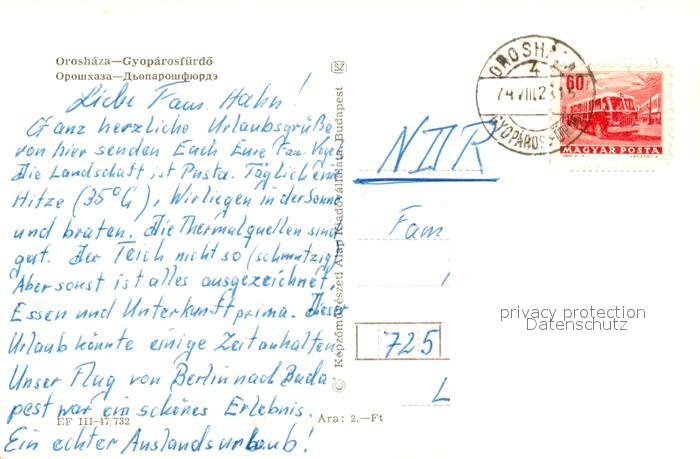 Orosháza—Gyopárosfürdő
Орошхаза—Дьопарошфюрдэ
Liebe Fam. Hahn!
Ganz herzliche Urlaubsgrüße
von hier senden Euch Eure Fam. Vogel
Die Landschaft ist Pusta. Täglich eine
Hitze (35°C), Wir liegen in der Sonne
und braten. Die Thermalquellen sind
gut. Der Teich nicht so (schmutzig)
Aber sonst ist alles ausgezeichnet,
Essen und Unterkunft prima. Dieser
Urlaub könnte einige Zeit anhalten
Unser Flug von Berlin nach Buda
pest war ein schönes Erlebnis.
EF III-47/732
Ara: 2.—Ft
Ein echter Auslandsurlaub!
SZ
© Képzőművészeti Alap Kiadóvállalata, Budapest
OROSHÁZA 4
74 VIII.2
GYOPÁROSFÜRDŐ
60f
MAGYAR POSTA
NDR
Fam
725
L
privacy protection
Datenschutz